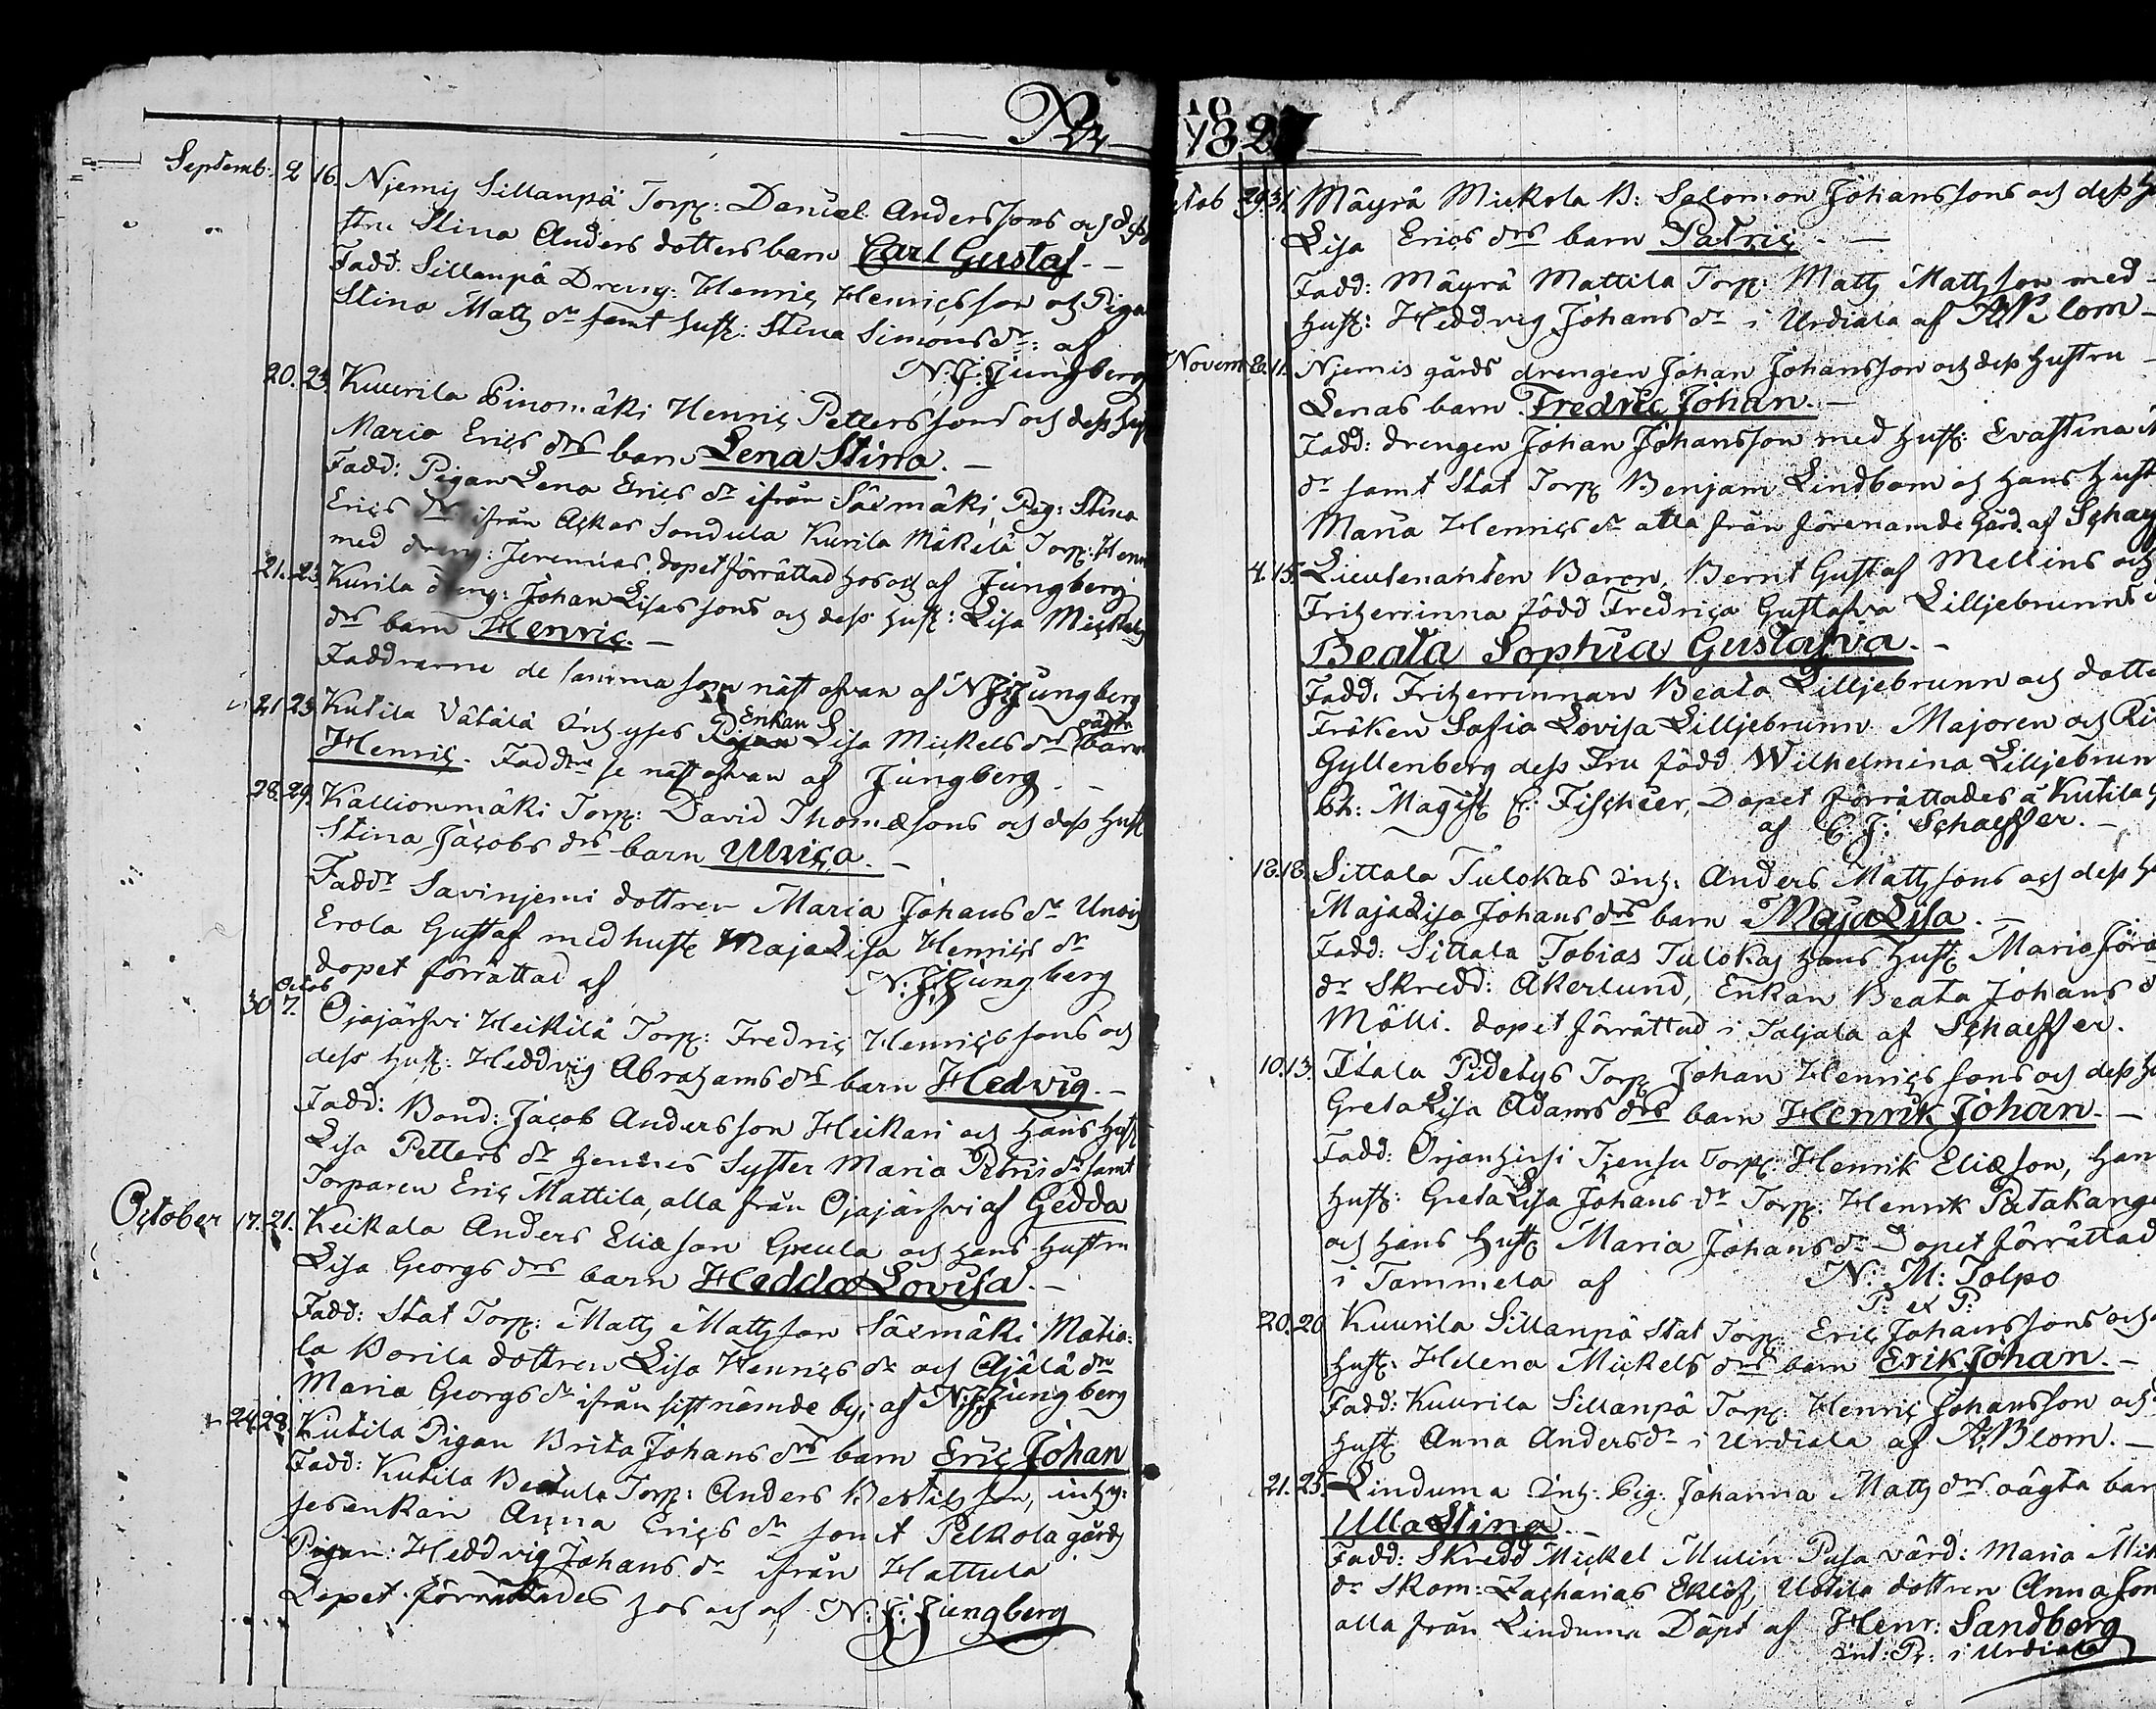 Septemb: 2 16. Njemis Sillanpä Torp: Daniel Anderssons och dess
stru Stina Anders dotters barn Carl Gustaf. —
Fadd. Sillanpä Dreng: Henric Henricsson och Piga
Stina Matts dr samt hust: Stina Simons dr: af
N: J: Jungberg
20. 23. Kuurila Pinomäki Henric Petterssons och dess hust
Maria Erics drs barn Lena Stina. —
Fadd: Pigan Lena Erics dr ifrån Säxmäki, Pig: Stina
Erics dr ifrån Ackas Sondula Kurila Mäkelä Torp: Henr
med dreng: Jeremias. dopet förrättad hos och af Jungberg
21. 23. Kurila dreng: Johan Lisas sons och dess hust: Lisa Mickels
drs barn Henric. —
Faddrarne de samma som näst ofvan af N: J: Jungberg
21 23. Kutila Vätälä Inhyses Enkan Lisa Mickels drs oägta barn
Henric. Faddrne se näst ofvan af Jungberg. —
28. 29. Kallionmäki Torp: David Thomæsons och dess hust
Stina Jacobs drs barn Ulrica. —
Faddr Savinjemi dottren Maria Johans dr
Erola Gustaf med hust Maja Lisa Henrics dr
dopet förrättad af N: J: Jungberg
Octob
30 7. Ojajärfvi Heikilä Torp: Fredric Henricssons och
dess hust: Heddvig Abrahams drs barn Hedvig. —
Fadd: Bond: Jacob Andersson Heikari och hans hust
Lisa Petters dr hennes Syster Maria Petters dr samt
Torparen Eric Mattila, alla från Ojajärfvi af Gedda
October 17. 21. Keikala Anders Eliæson Greula och hans hustru
Lisa Georgs drs barn Hedda Lovisa. —
Fadd: Stat Torp: Matts Mattsson Säxmäki Matia:
la Borila dottren Lisa Henrics dr och Ajälä dr
Maria Georgs dr ifrån sistnämde by; af N: J: Jungberg
24. 28. Kutila Pigan Brita Johans drs barn Eric Johan
Fadd: Kutila Beatula Torp: Anders Bertilsson, inhy:
sesenkan Anna Erics dr samt Pelkola gårds
Pigan: Heddvig Johans dr ifrån Hattula
Dopet förrättades hos och af N: J: Jungberg
1827
ctob 29. 31. Mäyrä Mickola B: Salomon Johanssons och dess H
Lisa Erics drs barn Patric. —
Fadd: Mäyrä Mattila Torp: Matts Mattsson med
hust: Heddvig Johans dr i Urdiala af A: Blom —
Novem 8. 11. Njemis gårds drengen Johan Johansson och dess hustru —
Lenas barn Fredric Johan. —
Fadd: drengen Johan Johansson med hust: Eva Stina
dr samt Stat Torp Benjam Lindbom och hans hust
Maria Henrics dr alla från förenämde Gård. af Schaef
4. 15. Lieutenanten Baron. Bernt Gustaf Mellins och
Friherrinna född Fredrica Gustafva Lilljebrunns
Beata Sophia Gustafva. —
Fadd: Friherrinnan Beata Lilljebrunn och dotte
Fröken Sofia Lovisa Lilljebrunn Majoren och Ri
Gyllenberg dess Fru född Wilhelmina Lilljebrun
Bh: Magist C: Fischier, Dopet förrättades å Kutila g
af C: J: Schaeffer. —
18. 18. Sittala Tulokas Inh: Anders Mattssons och dess H
Maja Lisa Johans drs barn Maja Lisa. —
Fadd: Sittala Tobias Tulokas hans Hust Maria Jöra
dr Skredd: Åkerlund, Enkan Beata Johans d
Mölli. dopet förrättad i Taljala af Schaeffer.
10. 13. Itala Pidetys Torp Johan Henricssons och dess hu
Greta Lisa Adams drs barn Henrik Johan. —
Fadd: Orjanhirsi Tjensu Torp: Henrik Eliæson, han
hust: Greta Lisa Johans dr Torp: Henrik Patakange
och hans hust Maria Johans dr Dopet förrättad
i Tammela af N: M: Tolpo
P: ex P:
20. 20 Kuurila Sillanpä Stat Torp Eric Johanssons och
hust: Helena Mickels drs barn Erik Johan. —
Fadd: Kuurila Sillanpä Torp: Henric Johansson och
hust Anna Anders dr i Urdiala af A: Blom. —
21. 25. Linduma Inh: Pig: Johanna Matts drs oägta bar
Ulla Stina. —
Fadd: Skredd Mickel Mulin Pusa värd: Maria Mik
dr Skom: Zacharias Eklöf, Uotila dottren Anna
alla från Linduma Döpt af Henr: Sandberg
Int: Pr: i Urdiala